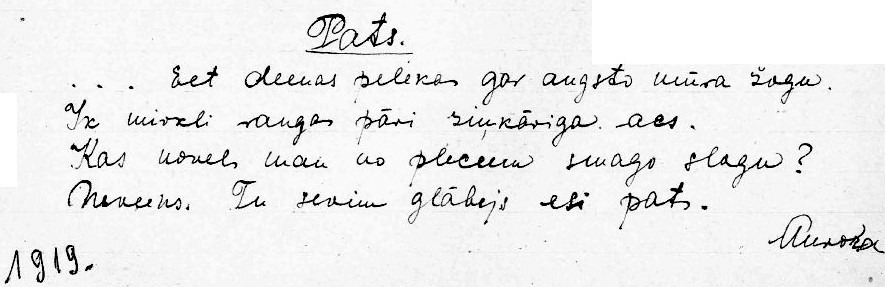 Pats.
. . . Eet deenas pelēkas gar augsto mūra žogu.
Ik mirkli raugas pāri ziņkāriga acs.
Kas novels man no pleceem smago slogu?
Neveens. Tu sevim glābejs esi pats.
Aurora
1919.